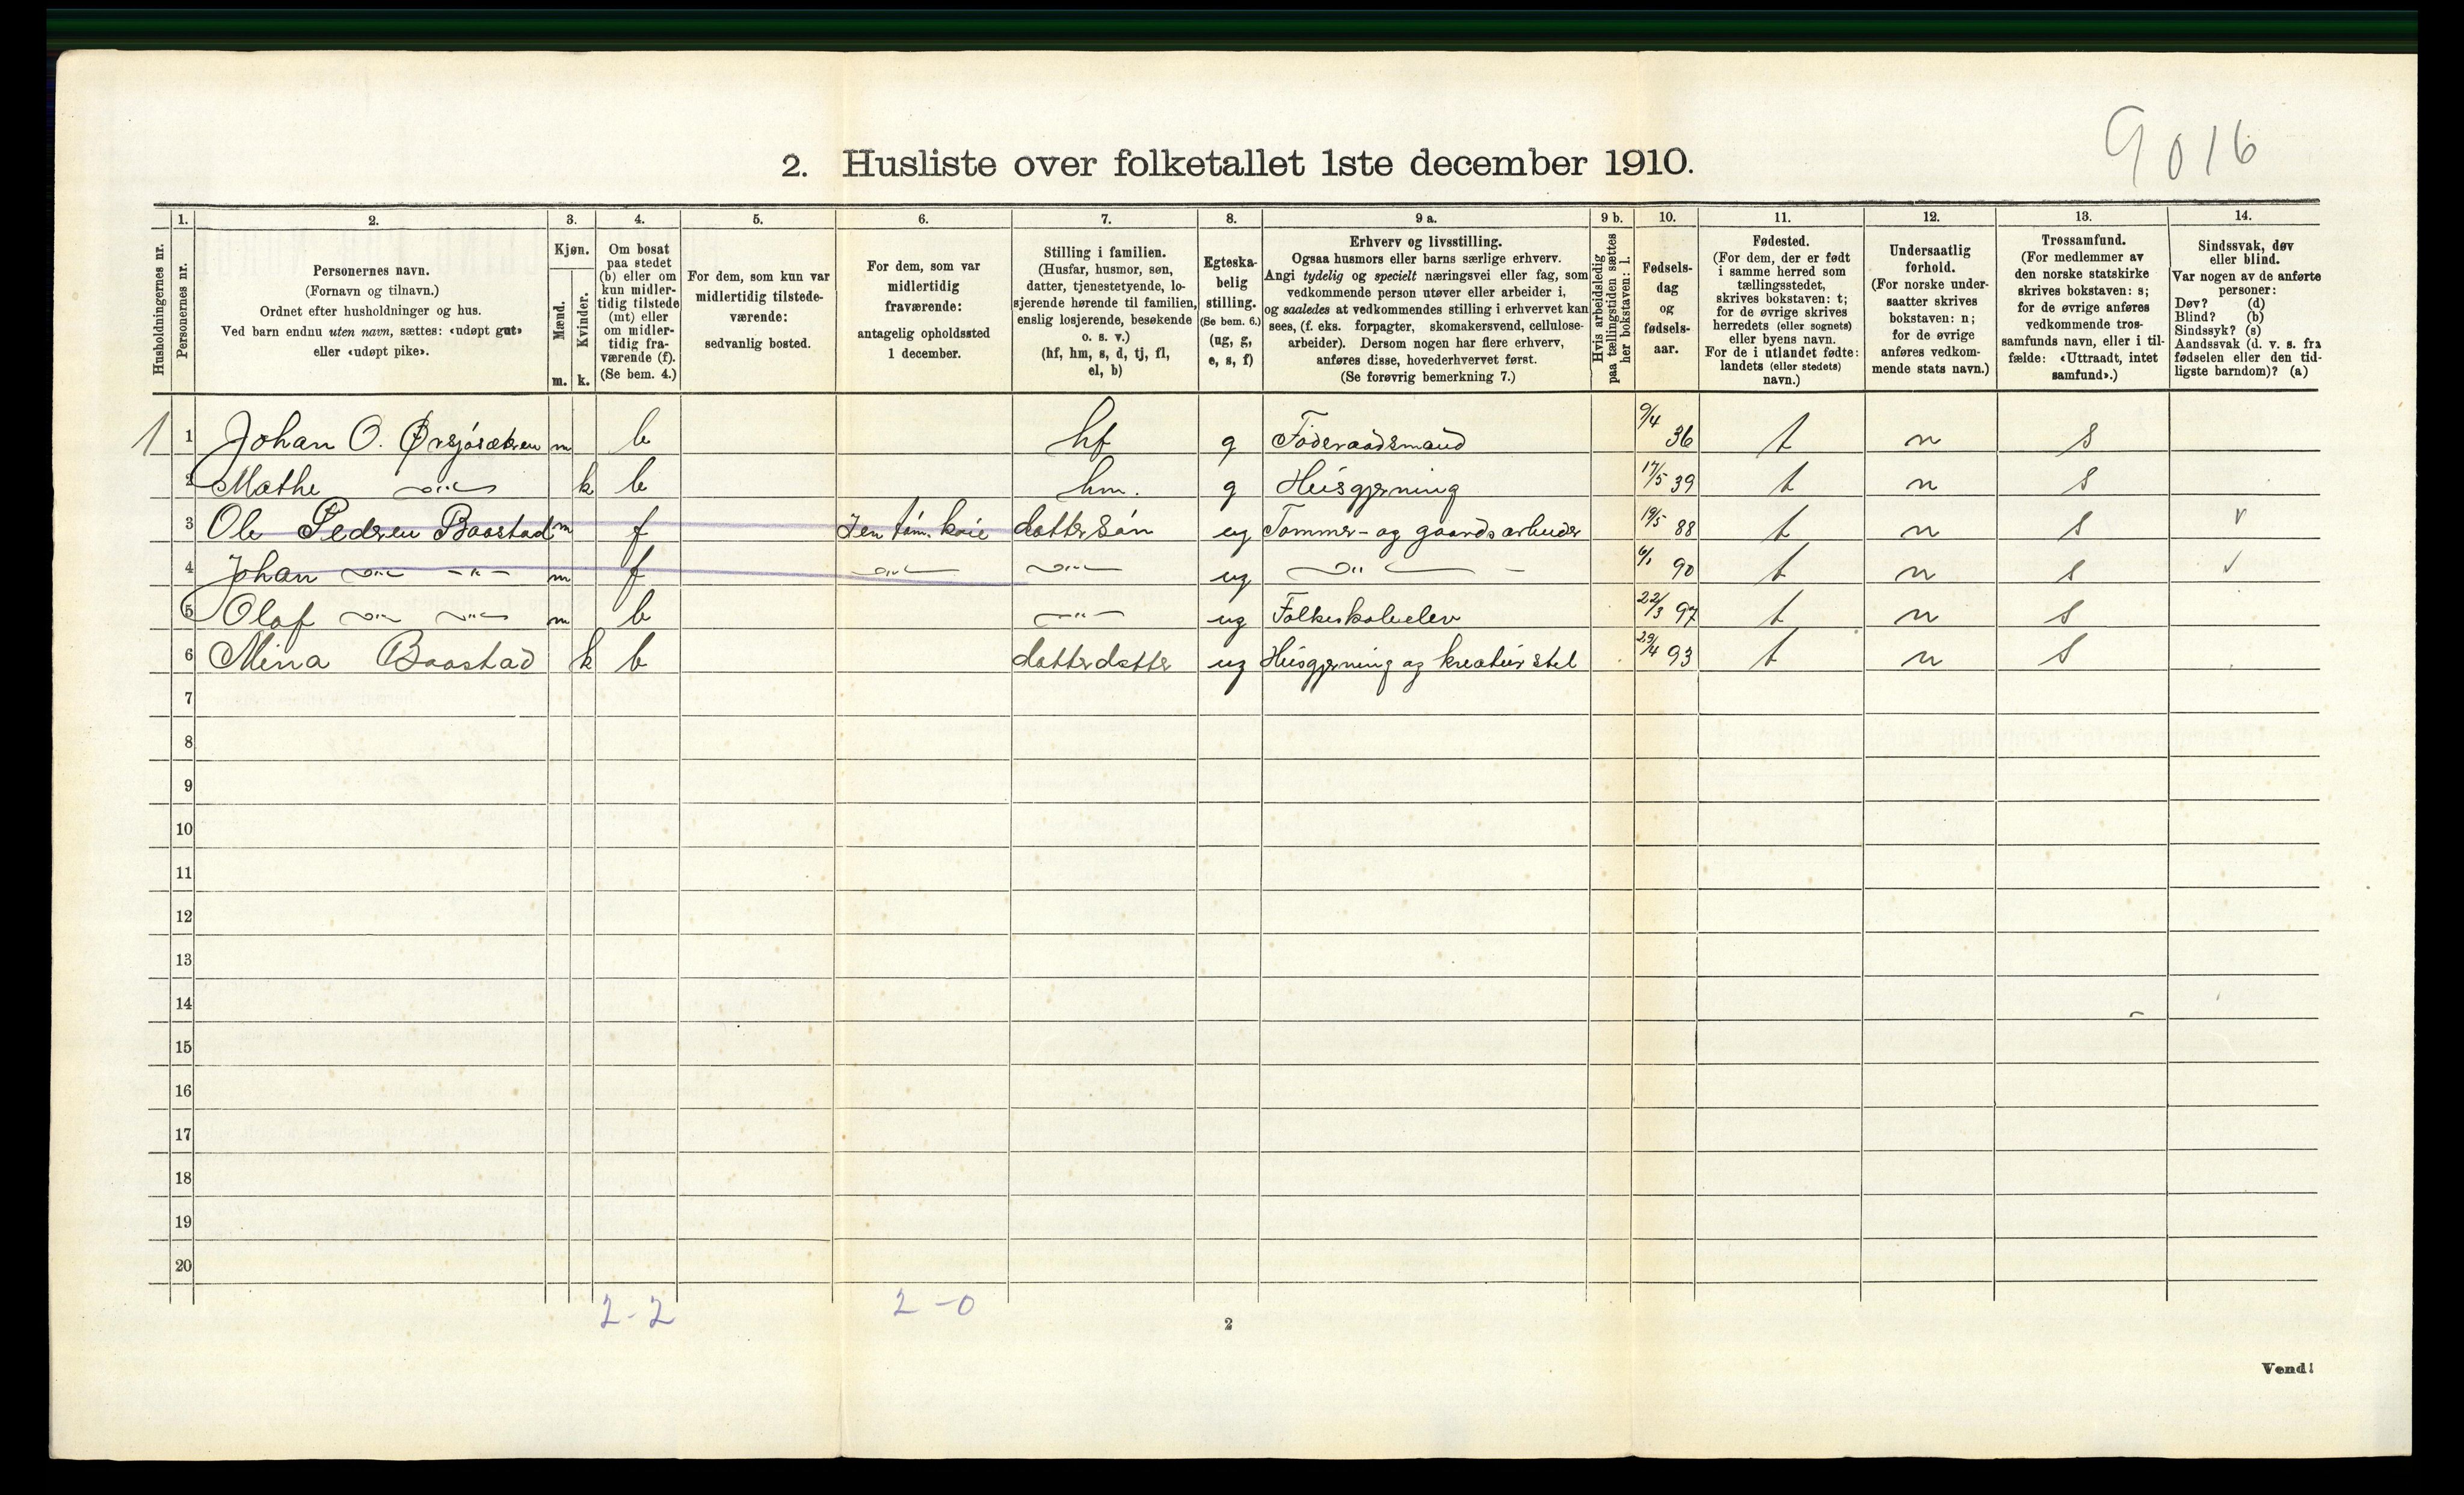 9016
2. Husliste over folketallet 1ste december 1910.
Husholdningernes nr.
1. Personernes nr.
2. Personernes navn. (Fornavn og tilnavn.) Ordnet efter husholdninger og hus. Ved barn endnu uten navn, sættes: «udøpt gut» eller «udøpt pike».
3. Kjøn. Mænd. m. Kvinder. k.
4. Om bosat paa stedet (b) eller om kun midlertidig tilstede (mt) eller om midlertidig fraværende (f). (Se bem. 4.)
5. For dem, som kun var midlertidig tilstedeværende: sedvanlig bosted.
6. For dem, som var midlertidig fraværende: antagelig opholdssted 1 december.
7. Stilling i familien. (Husfar, husmor, søn, datter, tjenestetyende, losjerende hørende til familien, enslig losjerende, besøkende o. s. v.) (hf, hm, s, d, tj, fl, el, b)
8. Egteskabelig stilling. (Se bem. 6.) (ug, g, e, s, f)
9 a. Erhverv og livsstilling. Ogsaa husmors eller barns særlige erhverv. Angi tydelig og specielt næringsvei eller fag, som vedkommende person utøver eller arbeider i, og saaledes at vedkommendes stilling i erhvervet kan sees, (f. eks. forpagter, skomakersvend, cellulosearbeider). Dersom nogen har flere erhverv, anføres disse, hovederhvervet først. (Se forøvrig bemerkning 7.)
9 b. Hvis arbeidsledig paa tællingstiden sættes her bokstaven: l.
10. Fødselsdag og fødselsaar.
11. Fødested. (For dem, der er født i samme herred som tællingsstedet, skrives bokstaven: t; for de øvrige skrives herredets (eller sognets) eller byens navn. For de i utlandet fødte: landets (eller stedets) navn.)
12. Undersaatlig forhold. (For norske undersaatter skrives bokstaven: n; for de øvrige anføres vedkommende stats navn.)
13. Trossamfund. (For medlemmer av den norske statskirke skrives bokstaven: s; for de øvrige anføres vedkommende trossamfunds navn, eller i tilfælde: «Uttraadt, intet samfund».)
14. Sindssvak, døv eller blind. Var nogen av de anførte personer: Døv? (d) Blind? (b) Sindssyk? (s) Aandssvak (d. v. s. fra fødselen eller den tidligste barndom)? (a)
1 1 Johan O. Ørsjösætren m b hf g Föderaadsmand 9/4 36 t n s
2 Mathe —"— k b hm. g Husgjerning 17/5 39 t n s
3 Ole Pedren Baastad m f tøm. koie dattersön ug Tømmer- og gaardsarbeider 19/5 88 t n s v
4 Johan —"— —"— m f —"— —"— ug —"— — 6/1 90 t n s v
5 Olaf —"— —"— m b —"— ug Folkeskoleelev 22/3 97 t n s
6 Mina Baastad k b datterdatter ug Husgjerning og kreaturstel 29/4 93 t n s
7
8
9
10
11
12
13
14
15
16
17
18
19
20
2-2 2-0
2
Vend!